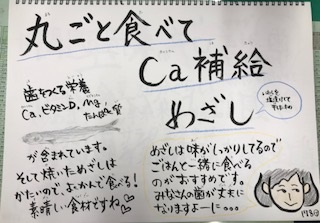 丸ごと食べて
Ca補給
めざし
歯をつくる栄養
Ca,ビタミンD,Mg,
たんぱく質
が含まれています。
そして焼いためざしは
かたいので、よ〜かんで食べる!
素晴しい食材ですね
めざしは味がしっかりしてるので
ごはんと一緒に食べる
のが大すすめです。
みなさんの歯が丈夫に
なりますよーに…